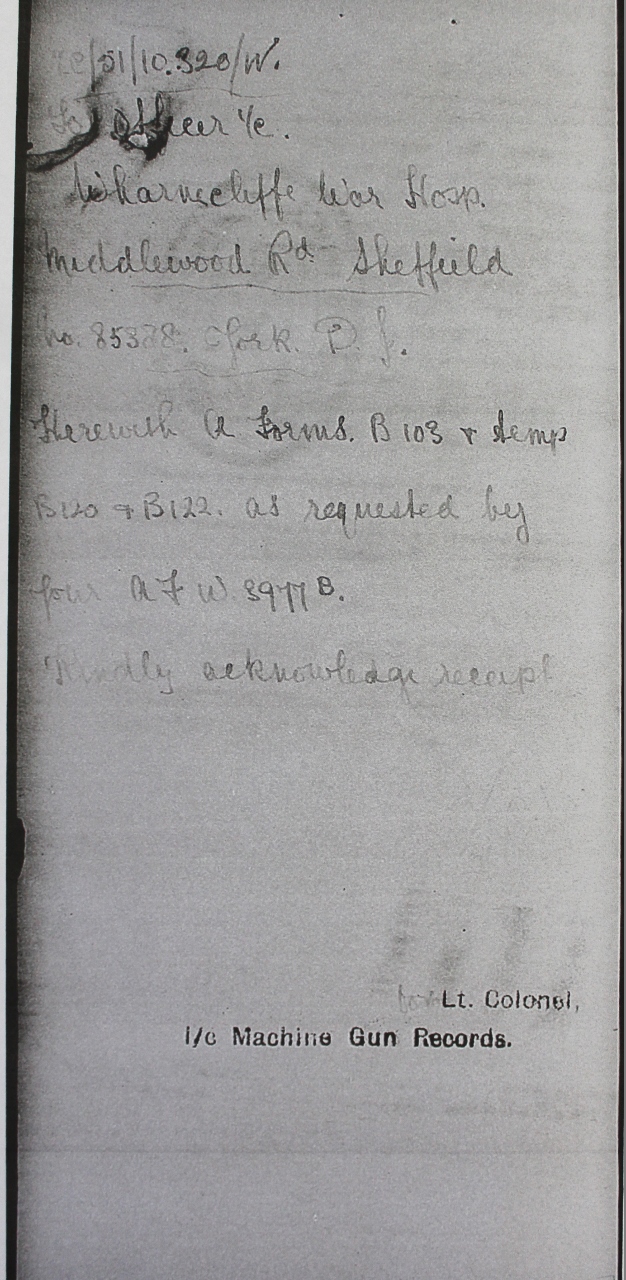 /51/10.320/W.
To Officer i/c.
Wharncliffe War Hosp.
Middlewood Rd Sheffield
No. 85378. P. J.
Herewith A Forms. B 103 & temp
B120 & B122. as requested by
your A F W 3977 B.
Kindly acknowledge receipt
for Lt. Colonel,
I/c Machine Gun Records.